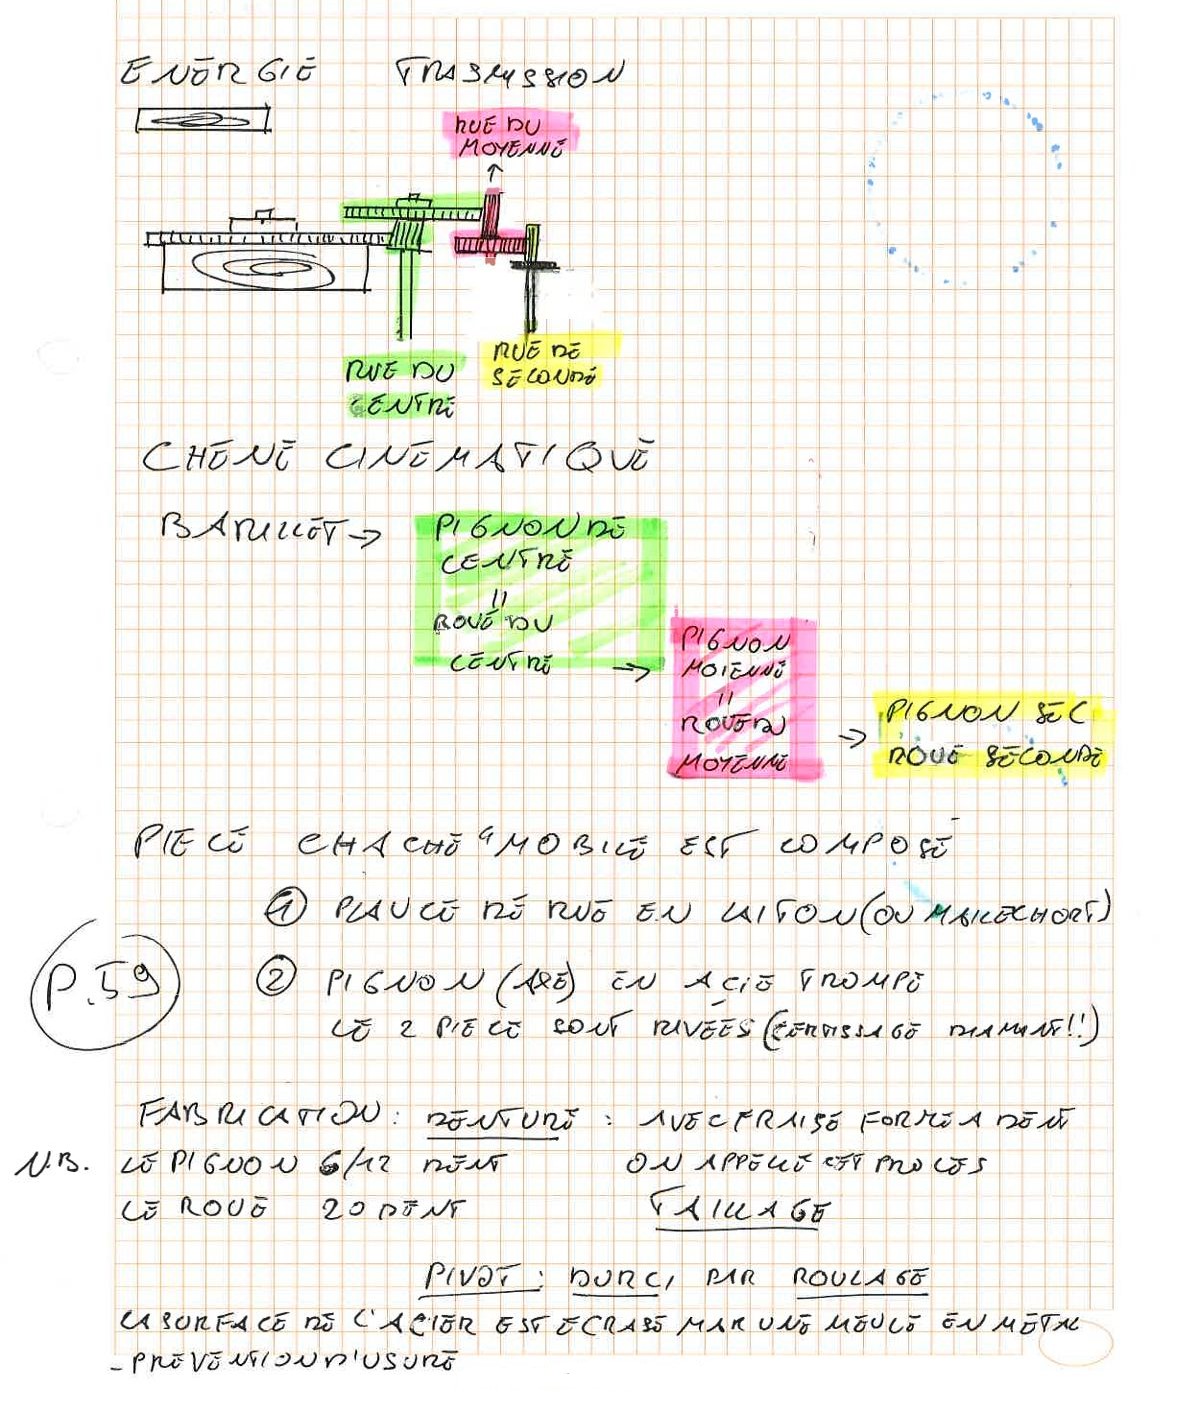 ENERGIE TRASMISSION
RUE DU
MOYENNE
RUE DU
CENTRE
RUE DE
SECONDE
CHENE CINEMATIQUE
BARILLET →
PIGNON DE
CENTRE
=
ROUE DU
CENTRE →
PIGNON
MOIENNE
=
ROUE DU
MOYENNE
→ PIGNON SEC
ROUE SECONDE
PIECE CHACHE "MOBILE EST COMPOSE
① DE RUE EN LAITON (OU MAILLECHORT)
P.59
② PIGNON (AXE) EN ACIE TROMPE
LE 2 PIECE SONT RIVÉES (SERTISSAGE DIAMANT!!)
FABRICATION: DENTURE : AVEC FRAISE FORME A DENT
N.B. LE PIGNON 6/12 DENT ON APPELLE CET PROCES
LE ROUE 20 DENT TAILLAGE
PIVOT: DURCI PAR ROULAGE
LA SURFACE DE L'ACIER EST ECRASE UNE MEULE EN METAL
- PREVENTION D'USURE